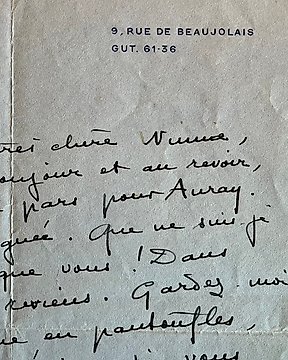 9, RUE DE BEAUJOLAIS
GUT. 61-36
chère
et au revoir,
pars pour Auray.
Que ne suis-je
que vous! Dans
reviens. Gardez-moi
en pantoufles,
vous